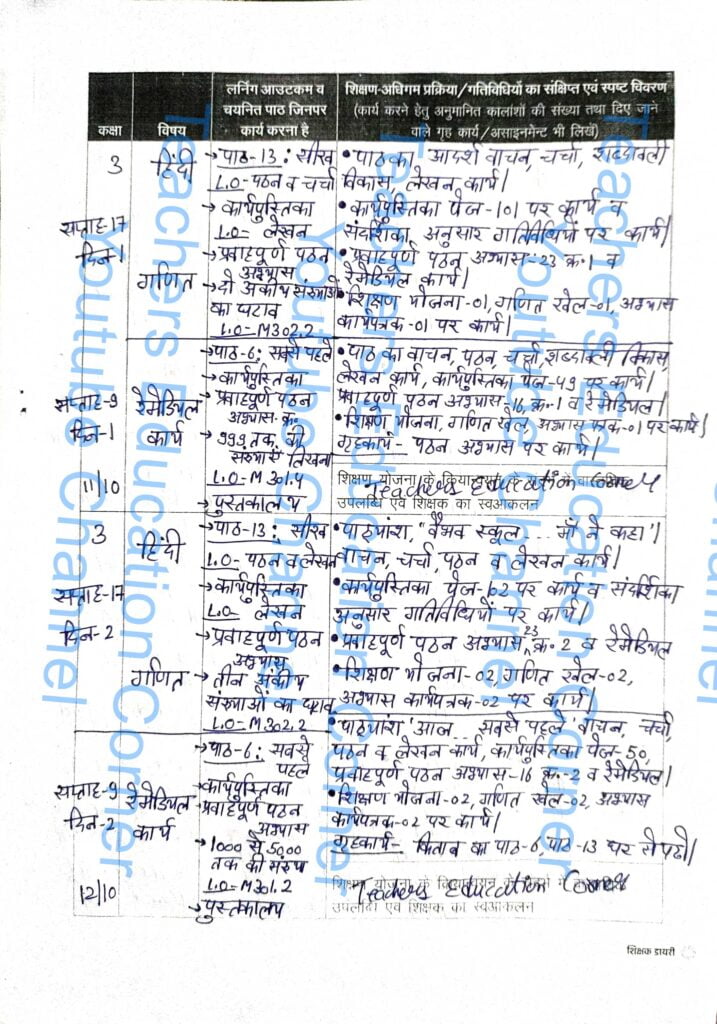 कक्षा
विषय
लर्निंग आउटकम व
चयनित पाठ जिनपर
कार्य करना है
शिक्षण-अधिगम प्रक्रिया/गतिविधियों का संक्षिप्त एवं स्पष्ट विवरण
(कार्य करने हेतु अनुमानित कालांशों की संख्या तथा दिए जाने
वाले गृह कार्य/असाइनमेन्ट भी लिखें)
3
सप्ताह-17
दिन-1
हिंदी
गणित
→पाठ-13: सीख
L.O-पठन व चर्चा
→कार्यपुस्तिका
L.O- लेखन
→प्रवाहपूर्ण पठन
अभ्यास
→दो अंकीय संख्याओं
का घटाव
L.O-M302.2
•पाठ का आदर्श वाचन, चर्चा, शब्दावली
विकास, लेखन कार्य।
•कार्यपुस्तिका पेज-101 पर कार्य व
संदर्शिका अनुसार गतिविधियों पर कार्य।
•प्रवाहपूर्ण पठन अभ्यास-23 क्र.1 व
रेमेडियल कार्य।
•शिक्षण योजना-01, गणित खेल-01, अभ्यास
कार्यपत्रक-01 पर कार्य।
सप्ताह-9
दिन-1
11/10
रेमेडियल
कार्य
→पाठ-6: सबसे पहले
→कार्यपुस्तिका
→प्रवाहपूर्ण पठन
अभ्यास क्र.
→999 तक की
संख्याएं लिखना
L.O-M301.4
→पुस्तकालय
•पाठ का वाचन, पठन, चर्चा, शब्दावली विकास,
लेखन कार्य, कार्यपुस्तिका पेज-49 पर कार्य।
प्रवाहपूर्ण पठन अभ्यास-16, क्र.-1 व रेमेडियल।
•शिक्षण योजना, गणित खेल, अभ्यास पत्रक-01 पर कार्य।
गृहकार्य- पठन अभ्यास पर कार्य।
शिक्षण योजना के
Teachers Education Corner
उपलब्धि एवं शिक्षक का स्वआकलन
3
सप्ताह-17
दिन-2
हिंदी
गणित
→पाठ-13: सीख
L.O- पठन व लेखन
→कार्यपुस्तिका
L.O- लेखन
→प्रवाहपूर्ण पठन
अभ्यास
→तीन अंकीय
संख्याओं का घटाव
L.O-M302.2
•पाठ्यांश, "वैभव स्कूल ... माँ ने कहा"।
वाचन, चर्चा, पठन व लेखन कार्य।
•कार्यपुस्तिका पेज-102 पर कार्य व संदर्शिका
अनुसार गतिविधियों पर कार्य।
•प्रवाहपूर्ण पठन अभ्यास 23 क्र. 2 व रेमेडियल
•शिक्षण योजना-02, गणित खेल-02,
अभ्यास कार्यपत्रक-02 पर कार्य।
सप्ताह-9
दिन-2
12/10
रेमेडियल
कार्य
→पाठ-6: सबसे
पहले
→कार्यपुस्तिका
→प्रवाहपूर्ण पठन
अभ्यास
→1000 से 5000
तक की संख्या
L.O-M301.2
→पुस्तकालय
•पाठ्यांश 'आज ... सबसे पहले' वाचन, चर्चा,
पठन व लेखन कार्य, कार्यपुस्तिका पेज-50,
प्रवाहपूर्ण पठन अभ्यास-16 क्र.-2 व रेमेडियल।
•शिक्षण योजना-02, गणित खेल-02, अभ्यास
कार्यपत्रक-02 पर कार्य।
गृहकार्य- किताब का पाठ-6, पाठ-13 घर से पढ़ो।
Teachers Education Corner
उपलब्धि एवं शिक्षक का स्वआकलन
शिक्षक डायरी
Teachers Education Corner
Youtube Channel
Teachers Education Corner
Youtube Channel